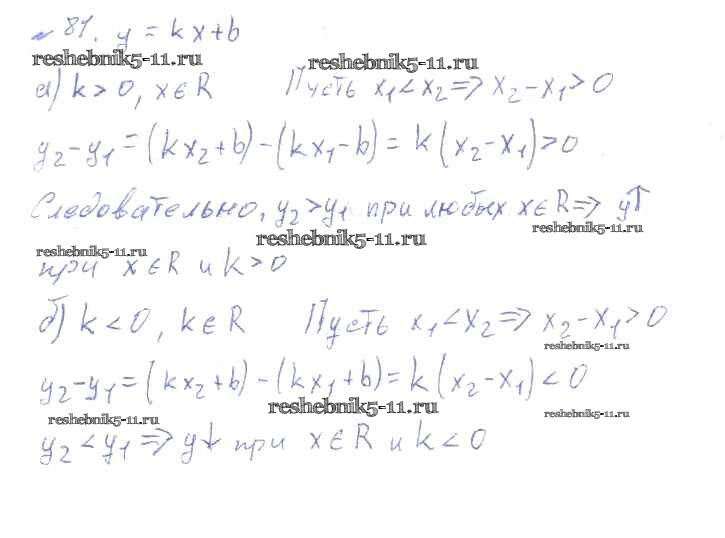 № 81. y = kx+b
reshebnik5-11.ru reshebnik5-11.ru
а) k > 0, x ∈ R Пусть x₁ < x₂ ⇒ x₂ – x₁ > 0
y₂ – y₁ = (kx₂+b) – (kx₁–b) = k(x₂–x₁) > 0
Следовательно, y₂ > y₁ при любых x ∈ R ⇒ y↑
reshebnik5-11.ru reshebnik5-11.ru reshebnik5-11.ru
при x ∈ R и k > 0
б) k < 0, k ∈ R Пусть x₁ < x₂ ⇒ x₂ – x₁ > 0
reshebnik5-11.ru
y₂ – y₁ = (kx₂+b) – (kx₁+b) = k(x₂–x₁) < 0
reshebnik5-11.ru reshebnik5-11.ru reshebnik5-11.ru
y₂ < y₁ ⇒ y↓ при x ∈ R и k < 0